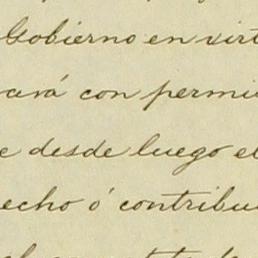 Gobierno en virt
con permi
e desde luego el
echo ó contribu